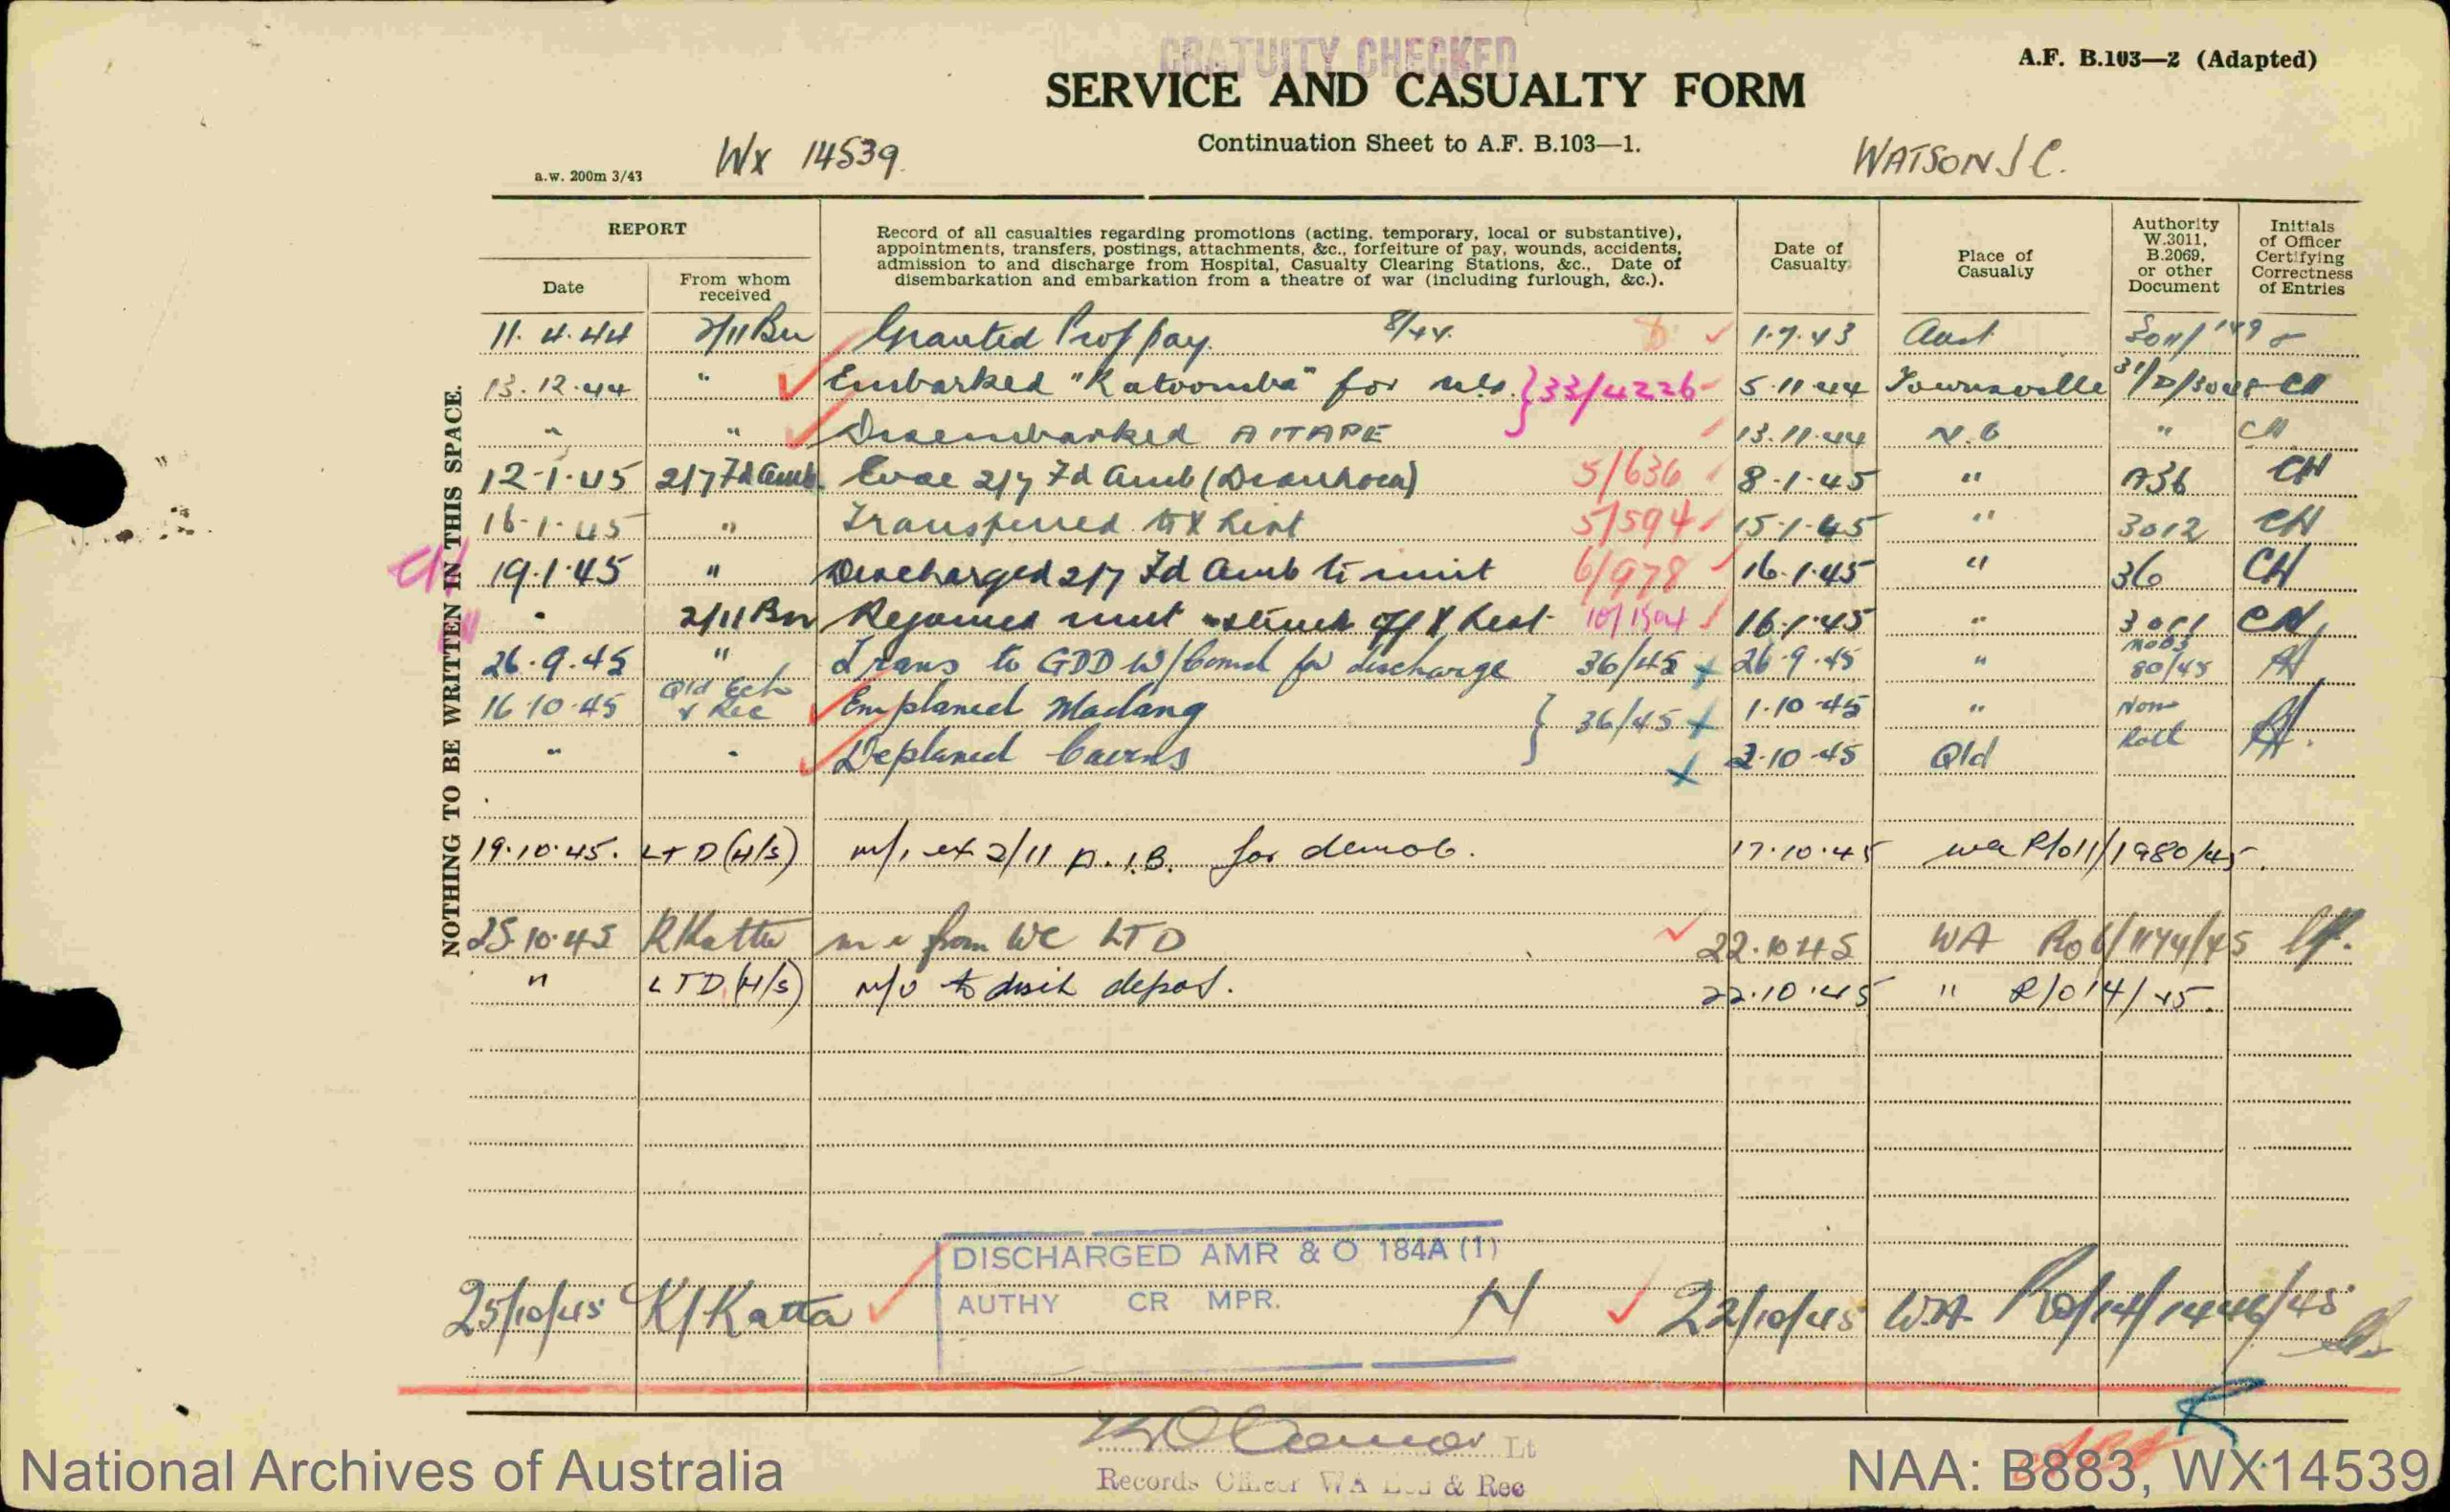 GRATUITY CHECKED
A.F. B.103—2 (Adapted)
SERVICE AND CASUALTY FORM
Continuation Sheet to A.F. B.103—1.
a.w. 200m 3/43
Wx 14539.
WATSON J C.
NOTHING TO BE WRITTEN IN THIS SPACE.
REPORT
Date
From whom received
Record of all casualties regarding promotions (acting, temporary, local or substantive),
appointments, transfers, postings, attachments, &c., forfeiture of pay, wounds, accidents,
admission to and discharge from Hospital, Casualty Clearing Stations, &c., Date of
disembarkation and embarkation from a theatre of war (including furlough, &c.).
Date of Casualty.
Place of Casualty
Authority W.3011, B.2069, or other Document
Initials of Officer Certifying Correctness of Entries
11.4.44 2/11 Bn Granted Prof pay. 8/44. 1.7.43 Aust
13.12.44 " Embarked "Katoomba" for 33/4226 5.11.44 Townsville CH
" " Disembarked AITAPE 13.11.44 N.G " CH
12.1.45 2/7 Fd Amb. Evac 2/7 Fd Amb (Diarrhoea) 5/636 8.1.45 " A36 CH
16.1.45 " Transferred to X List 5/594 15.1.45 " 3012 CH
19.1.45 " Discharged 2/7 Fd Amb to unit 6/978 16.1.45 " 36 CH
" 2/11 Bn Rejoined unit & struck off X List 16.1.45 " CH
26.9.45 " Trans to GDD W/Comd for discharge 36/45 26.9.45 " 80/45
16.10.45 Qld Ech & Rec Emplaned Madang 36/45 1.10.45 " Nom
" " Deplaned Cairns 2.10.45 Qld Roll
19.10.45. LTD (H/S) m/i ex 2/11 A.I.B. for demob. 17.10.45 WA R/o 11/1980/45.
25.10.45 K Katta from WC LTD 22.10.45 WA
" LTD (H/S) m/o to disch depot. 22.10.45 " R/o 14/45.
DISCHARGED AMR & O 184A (1)
AUTHY CR MPR. N
25/10/45 K/Katta 22/10/45 W.A.
Lt
Records Officer WA & Rec
National Archives of Australia
NAA: B883, WX14539